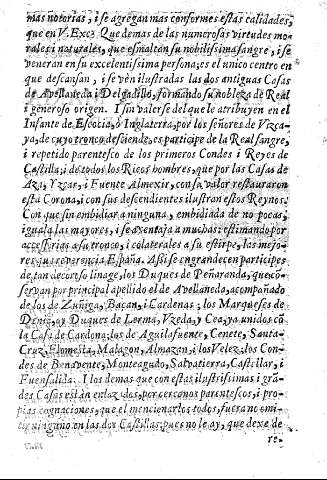 mas notorias, i se agregan mas conformes estas calidades,
que en V. Exc? Que demas de las numerosas virtudes mo-
rales i naturales, que esmaltan su nobilissima sangre, i se
veneran en su excelentissima persona; es el unico centro en
que descansan, i se vèn ilustradas las dos antiguas Casas
de Avellaneda i Delgadillo, formando su nobleza de Real
i generoso origen. I sin valerse del que le atribuyen en el
Infante de Escocia, ò Inglaterra, por los señores de Vizca-
ya, de cuyo tronco desciende, es participe de la Real sangre,
i repetido parentesco de los primeros Condes i Reyes de
Castilla; i de todos los Ricos hombres, que por las Casas de
Aza, Yscar, i Fuente Almexir, con su valor restauraron
esta Corona, i con sus descendientes ilustran estos Reynos.
Con que sin embidiar a ninguna, embidiada de no pocas,
iguala las mayores, i se aventaja a muchas: estimando por
accessorias a su tronco, i colaterales a su estirpe, las mejo-
res que reverencia España. Assi se engrandecen participes
de tan decoroso linage, los Duques de Peñaranda, que cō-
servan por principal apellido el de Avellaneda, acompañado
de los de Zuñiga, Baçan, i Cardenas; los Marqueses de
Denia, oy Duques de Lerma, Vzeda, y Cea, ya unidos cō
la Casa de Cardona; los de Aguilafuente, Cenete, Santa-
Cruz, Flomesta, Malagon, Almazan, i los Velez; los Con-
des de Benavente, Monteagudo, Salvatierra, Castellar, i
Fuensalida. I los demas que con estas ilustrissimas i grā-
des Casas estàn enlazados, por cercanos parentescos, i pro-
pias cognaciones, que el mencionarlos todos, fuera no omi-
tir ninguno en las dos Castillas, pues no le ay, que dexe de
re-